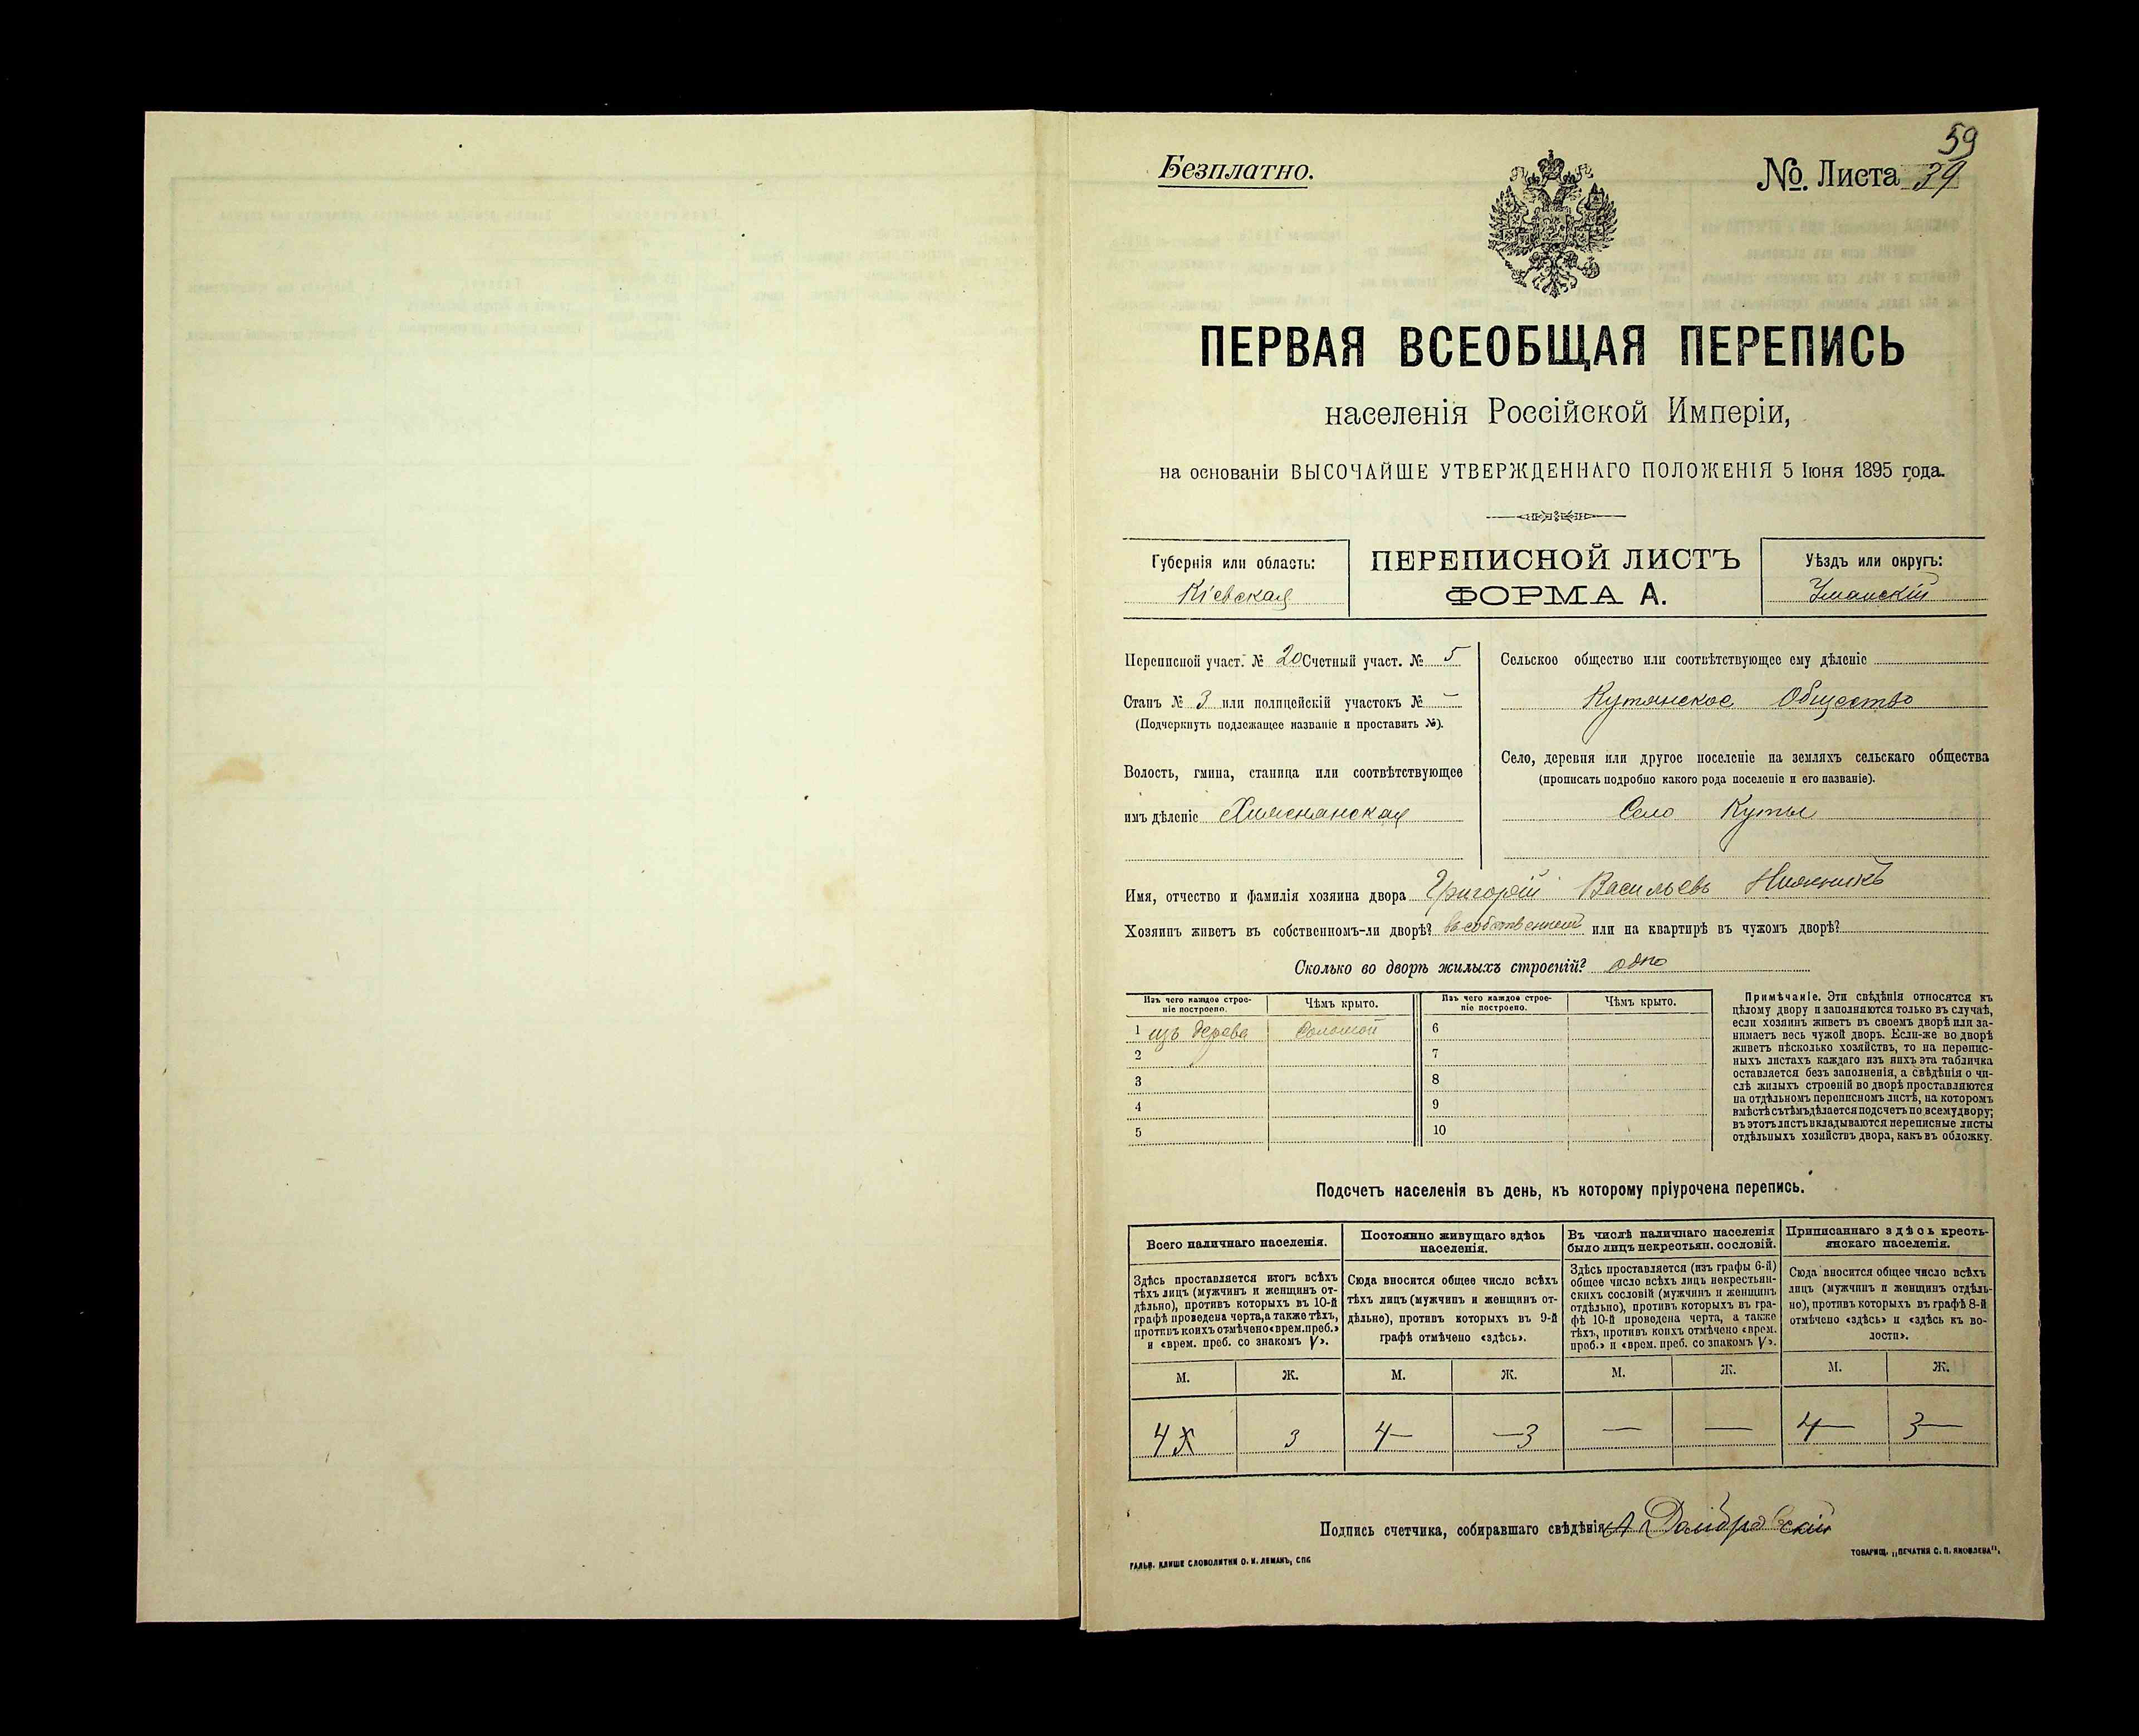 59
Безплатно.
№. Листа 39
ПЕРВАЯ ВСЕОБЩАЯ ПЕРЕПИСЬ
населенія Россійской Имперіи,
на основаніи ВЫСОЧАЙШЕ УТВЕРЖДЕННАГО ПОЛОЖЕНІЯ 5 Іюня 1895 года.
Губернія или область:
Кіевская
ПЕРЕПИСНОЙ ЛИСТЪ
ФОРМА А.
Уѣздъ или округъ:
Уманскій
Переписной участ. № 20 Счетный участ. № 5
Станъ № 3 или полицейскій участокъ № —
(Подчеркнуть подлежащее названіе и проставить №).
Волость, гмина, станица или соотвѣтствующее
имъ дѣленіе
Сельское общество или соотвѣтствующее ему дѣленіе
Кутянское Общество
Село, деревня или другое поселеніе на земляхъ сельскаго общества
(прописать подробно какого рода поселеніе и его названіе).
Село Куты
Имя, отчество и фамилія хозяина двора Григорій Васильевъ
Хозяинъ живетъ въ собственномъ-ли дворѣ? въ собственном или на квартирѣ въ чужомъ дворѣ?
Сколько во дворѣ жилыхъ строеній? одно
Изъ чего каждое строе-
ніе построено.
Чѣмъ крыто.
Изъ чего каждое строе-
ніе построено.
Чѣмъ крыто.
1 изъ дерева Соломой 6
2 7
3 8
4 9
5 10
Примѣчаніе. Эти свѣдѣнія относятся къ
цѣлому двору и заполняются только въ случаѣ,
если хозяинъ живетъ въ своемъ дворѣ или за-
нимаетъ весь чужой дворъ. Если-же во дворѣ
живетъ нѣсколько хозяйствъ, то на перепис-
ныхъ листахъ каждаго изъ нихъ эта табличка
оставляется безъ заполненія, а свѣдѣнія о чи-
слѣ жилыхъ строеній во дворѣ проставляются
на отдѣльномъ переписномъ листѣ, на которомъ
вмѣстѣ съ тѣмъ дѣлается подсчетъ по всему двору;
въ этотъ листъ вкладываются переписные листы
отдѣльныхъ хозяйствъ двора, какъ въ обложку.
Подсчетъ населенія въ день, къ которому пріурочена перепись.
Всего наличнаго населенія.
Здѣсь проставляется итогъ всѣхъ
тѣхъ лицъ (мужчинъ и женщинъ от-
дѣльно), противъ которыхъ въ 10-й
графѣ проведена черта, а также тѣхъ,
противъ коихъ отмѣчено «врем. преб.»
и «врем. преб. со знакомъ V».
Постоянно живущаго здѣсь
населенія.
Сюда вносится общее число всѣхъ
тѣхъ лицъ (мужчинъ и женщинъ от-
дѣльно), противъ которыхъ въ 9-й
графѣ отмѣчено «здѣсь».
Въ числѣ наличнаго населенія
было лицъ некрестьян. сословій.
Здѣсь проставляется (изъ графы 6-й)
общее число всѣхъ лицъ некрестьян-
скихъ сословій (мужчинъ и женщинъ
отдѣльно), противъ которыхъ въ гра-
фѣ 10-й проведена черта, а также
тѣхъ, противъ коихъ отмѣчено «врем.
преб.» и «врем. преб. со знакомъ V».
Приписаннаго здѣсь кресть-
янскаго населенія.
Сюда вносится общее число всѣхъ
лицъ (мужчинъ и женщинъ отдѣль-
но), противъ которыхъ въ графѣ 8-й
отмѣчено «здѣсь» и «здѣсь къ во-
лости».
М. Ж. М. Ж. М. Ж. М. Ж.
4 3 4— —3 — — 4— 3—
Подпись счетчика, собиравшаго свѣдѣнія
ГАЛЬВ. КЛИШЕ СЛОВОЛИТНИ О. И. ЛЕМАНЪ, СПБ
ТОВАРИЩ. „ПЕЧАТНЯ С. П. ЯКОВЛЕВА“.